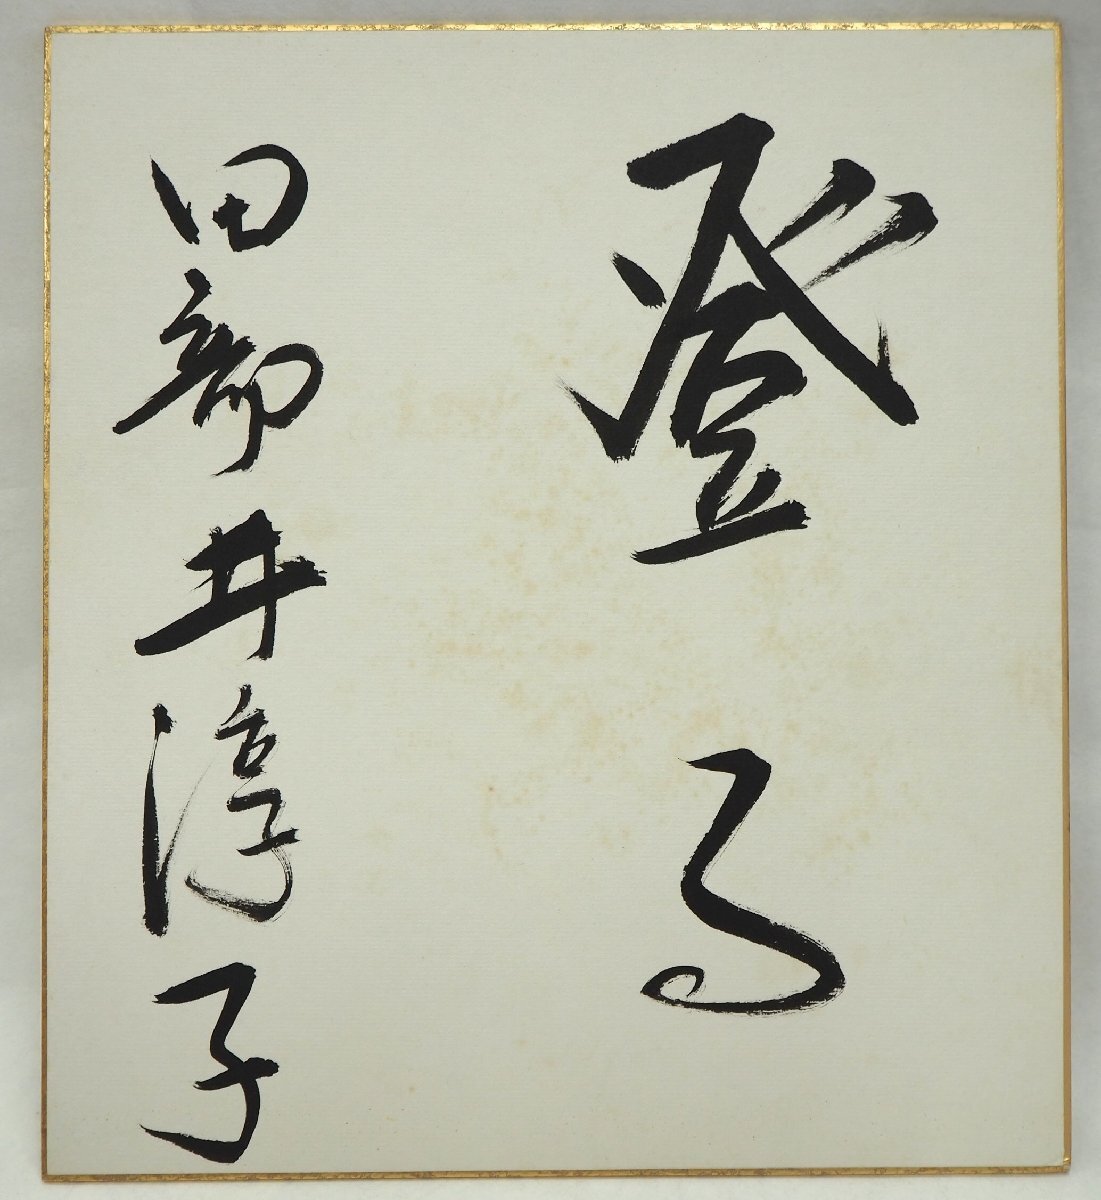 登る
田部井淳子